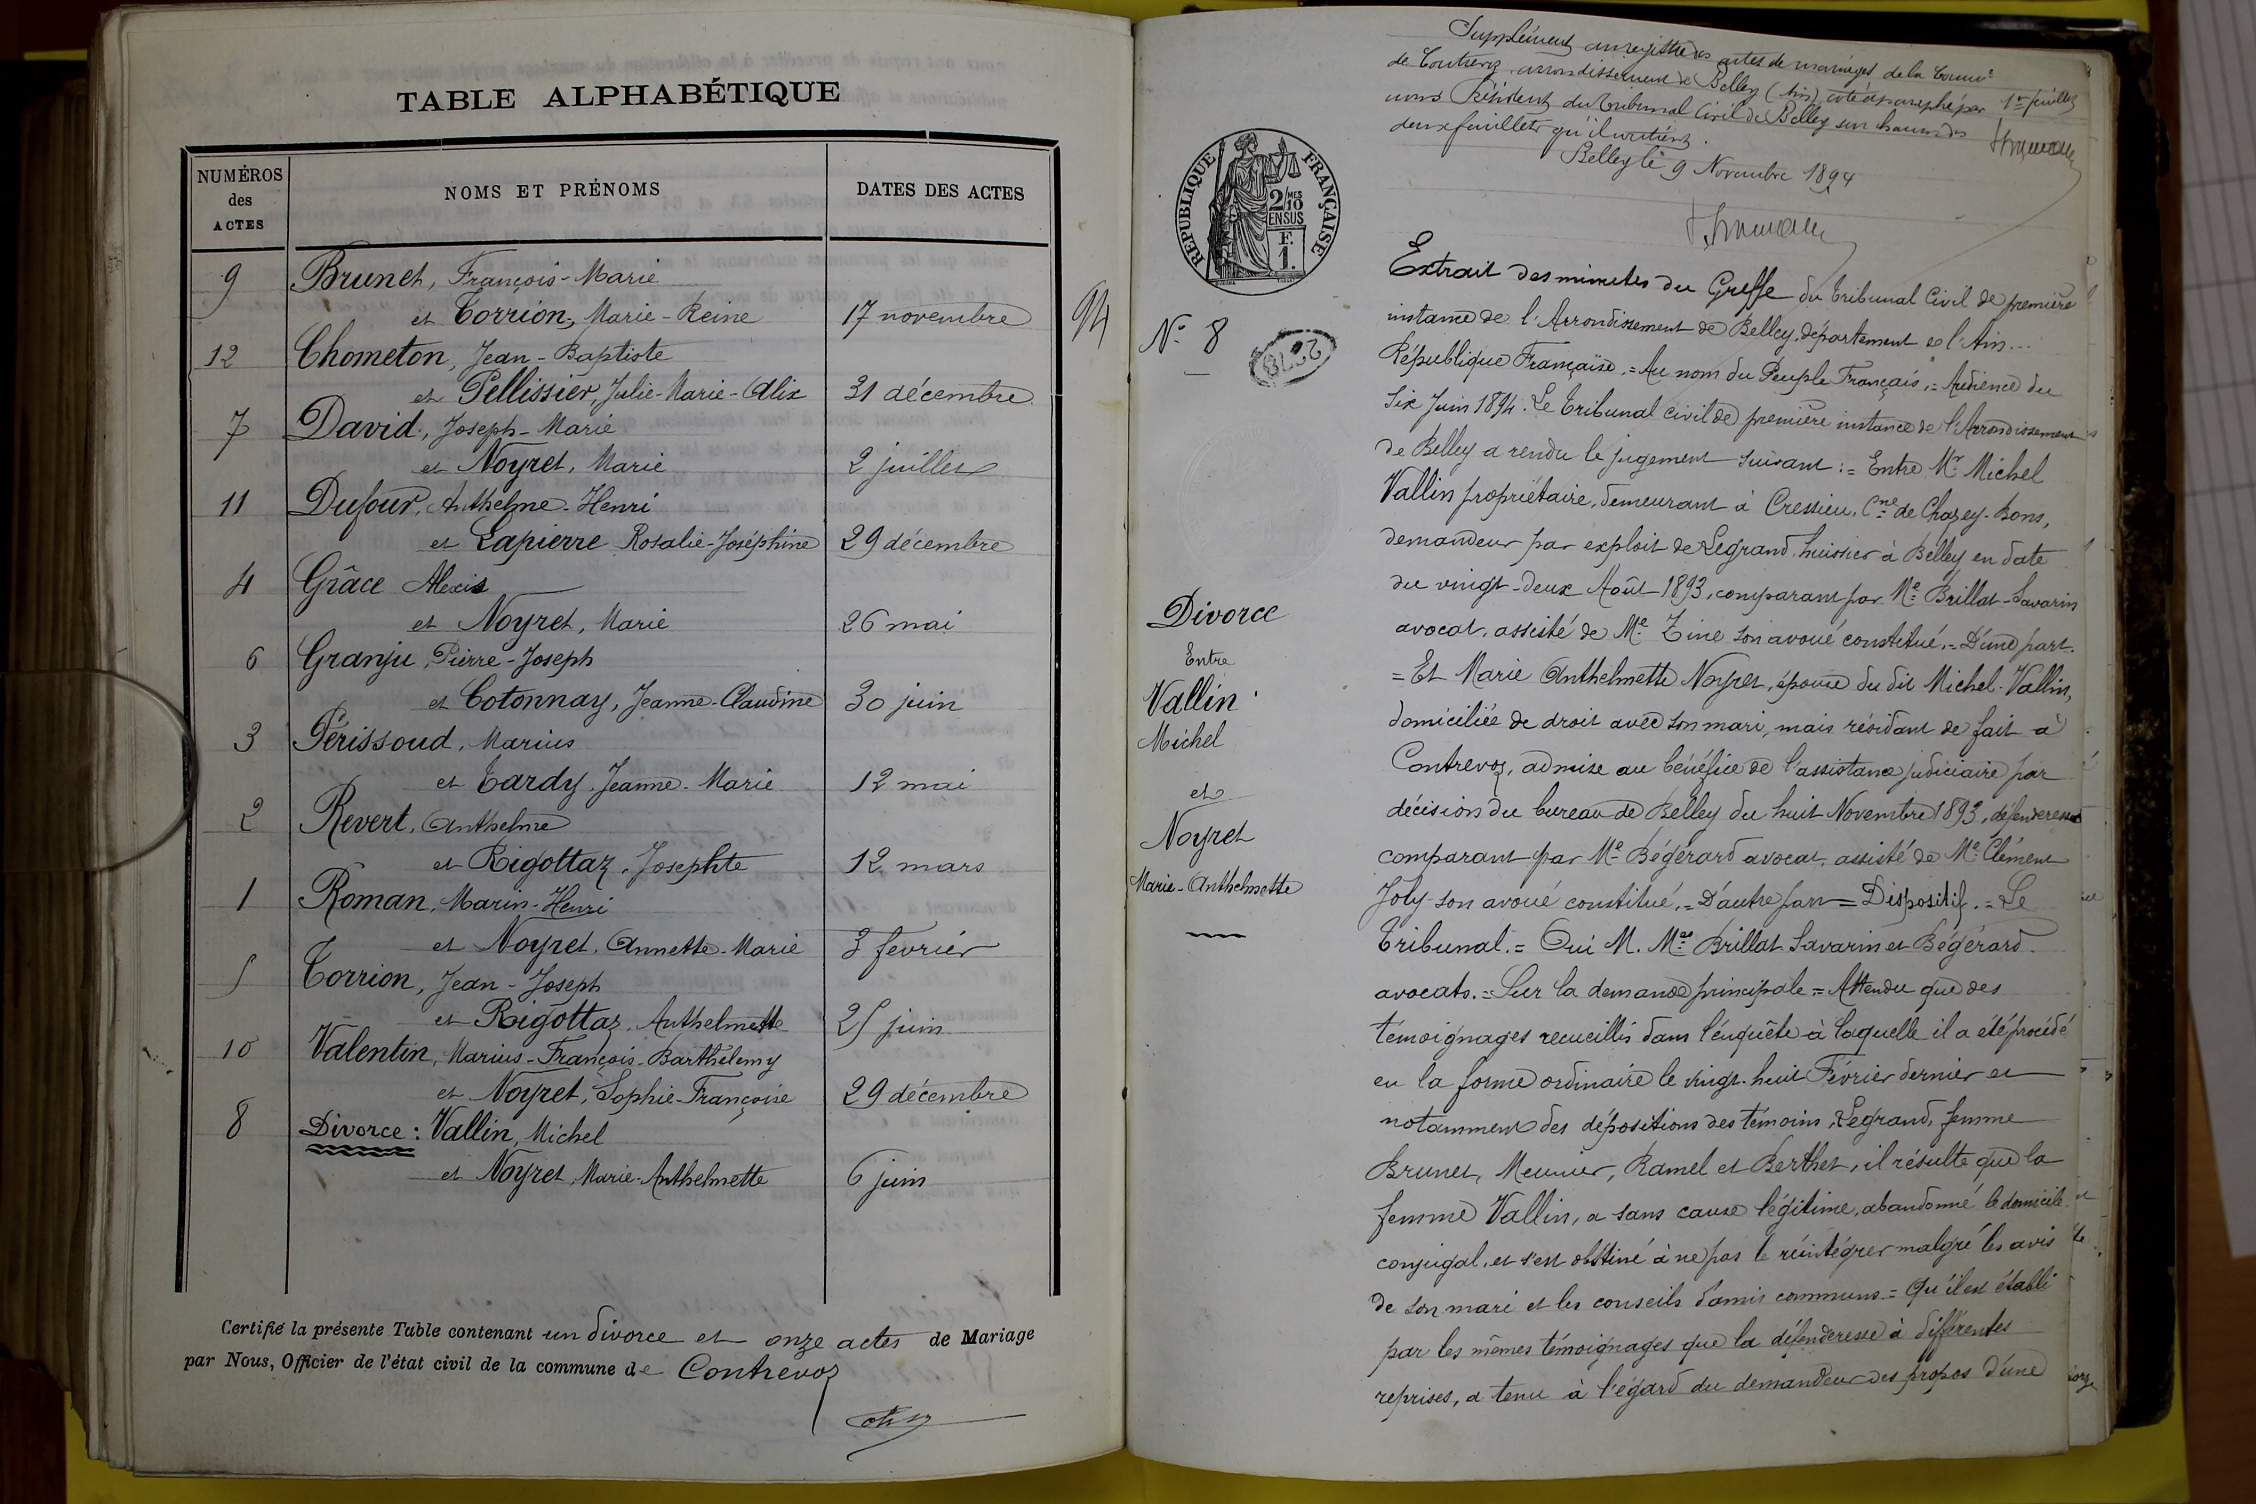 TABLE ALPHABÉTIQUE
NUMÉROS des ACTES
NOMS ET PRÉNOMS
DATES DES ACTES
9 Brunet, François-Marie
et Torrion, Marie-Reine 17 novembre
12 Chometon, Jean-Baptiste
et Pellissier, Julie-Marie-Alix 31 décembre
7 David, Joseph-Marie
et Noyret, Marie 2 juillet
11 Dufour, Anthelme-Henri
et Lapierre Rosalie-Joséphine 29 décembre
4 Grâce Alexis
et Noyret, Marie 26 mai
6 Granju, Pierre-Joseph
et Cotonnay, Jeanne-Claudine 30 juin
3 Périssoud, Marius
et Tardy, Jeanne-Marie 12 mai
2 Revert, Anthelme
et Rigottaz, Josephte 12 mars
1 Roman, Marin-Henri
et Noyret, Annette-Marie 3 février
5 Torrion, Jean-Joseph
et Rigottaz, Anthelmette 25 juin
10 Valentin, Marius-François-Barthélemy
et Noyret, Sophie-Françoise 29 décembre
8 Divorce : Vallin, Michel
et Noyret, Marie-Anthelmette 6 juin
Certifié la présente Table contenant un divorce et onze actes de Mariage
par Nous, Officier de l'état civil de la commune de Contrevoz
94
Supplément au registre des actes de mariages de la Commne
de Contrevoz, arrondissement de Belley (Ain), coté et paraphé par
nous Président du Tribunal Civil de Belley sur chacun des
deux feuillets qu'il contient.
Belley le 9 Novembre 1894
1er feuillet
RÉPUBLIQUE FRANÇAISE
2/10 MES
EN SUS
F.
1.
No 8
Divorce
Entre
Vallin
Michel
et
Noyret
Marie-Anthelmette
Extrait des minutes du Greffe du Tribunal Civil de première
instance de l'Arrondissement de Belley, département de l'Ain...
République Française. = Au nom du Peuple Français. = Audience du
Six Juin 1894. Le Tribunal civil de première instance de l'Arrondissement
de Belley a rendu le jugement suivant : = Entre Mr Michel
Vallin propriétaire, demeurant à Cressieu, Cne de Chazey-Bons,
demandeur par exploit de Legrand huissier à Belley en date
du vingt-deux Août 1893, comparant par Me Brillat-Savarin
avocat, assisté de Me Zine son avoué constitué. = D'une part.
= Et Marie Anthelmette Noyret, épouse du dit Michel Vallin,
domiciliée de droit avec son mari, mais résidant de fait à
Contrevoz, admise au bénéfice de l'assistance judiciaire par
décision du bureau de Belley du huit Novembre 1893, défenderesse
comparant par Me Bégérard avocat, assisté de Me Clément
Joly son avoué constitué. = D'autre part = Dispositif. = Le
Tribunal. = Oui M. Mes Brillat Savarin et Bégérard
avocats. = Sur la demande principale = Attendu que des
témoignages recueillis dans l'enquête à laquelle il a été procédé
en la forme ordinaire le vingt-huit Février dernier et
notamment des dépositions des témoins, Legrand, femme
Brunet, Meunier, Ramel et Berthet, il résulte que la
femme Vallin, a sans cause légitime, abandonné le domicile
conjugal, et s'est obstiné à ne pas le réintégrer malgré les avis
de son mari et les conseils d'amis communs = Qu'il est établi
par les mêmes témoignages que la défenderesse à différentes
reprises, a tenu à l'égard du demandeur des propos d'une